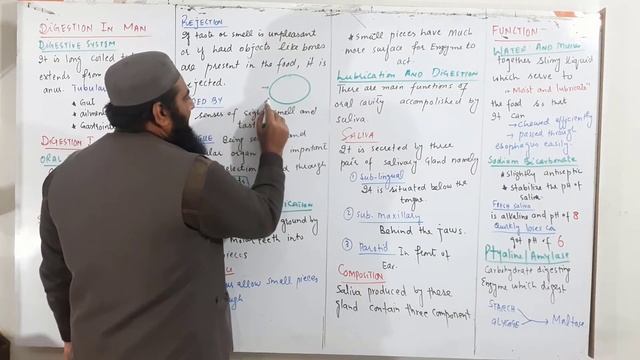 DIGESTION IN MAN
DIGESTIVE SYSTEM
It is long called t
extends from
anus. Tubular
* Gut
* aliment
* Gastroint
DIGESTION I
ORAL
REJECTION
If task or smell is unpleasant
or if hard objects like bones
are present in the food, it is
ejected.
ED BY
senses of smell and
tas
Being se nd
ular organ important
election through
ICATION
ground by
teeth into
ieces
us allow small pieces
ough
* Small pieces have much
more surface for Enzyme to
act.
Lubrication AND DIGESTION
There are main functions of
oral cavity accompolished by
saliva.
SALIVA
It is secreted by three
pair of salivary gland namely
① Sub-lingual
It is situated below the
tongue.
② Sub-maxillary
Behind the jaws.
③ Parotid In front of
Ear.
COMPOSITION
Saliva produced by these
gland contain three component
FUNCTION
WATER AND MUCUS
together slimy liquid
which serve to
- Moist and lubricate
the food so that
it can
→ Chewed efficiently
→ passed through
esophagus easily.
Sodium Bicarbonate
* Slightly antiseptic
* Stabilize the pH of
saliva.
Fresh saliva
is alkaline and pH of 8
Quickly loses CO2
got pH of 6
Ptyaline / Amylase
Carbohydrate digesting
Enzyme which digest
STARCH
GLYCOGE
Maltose